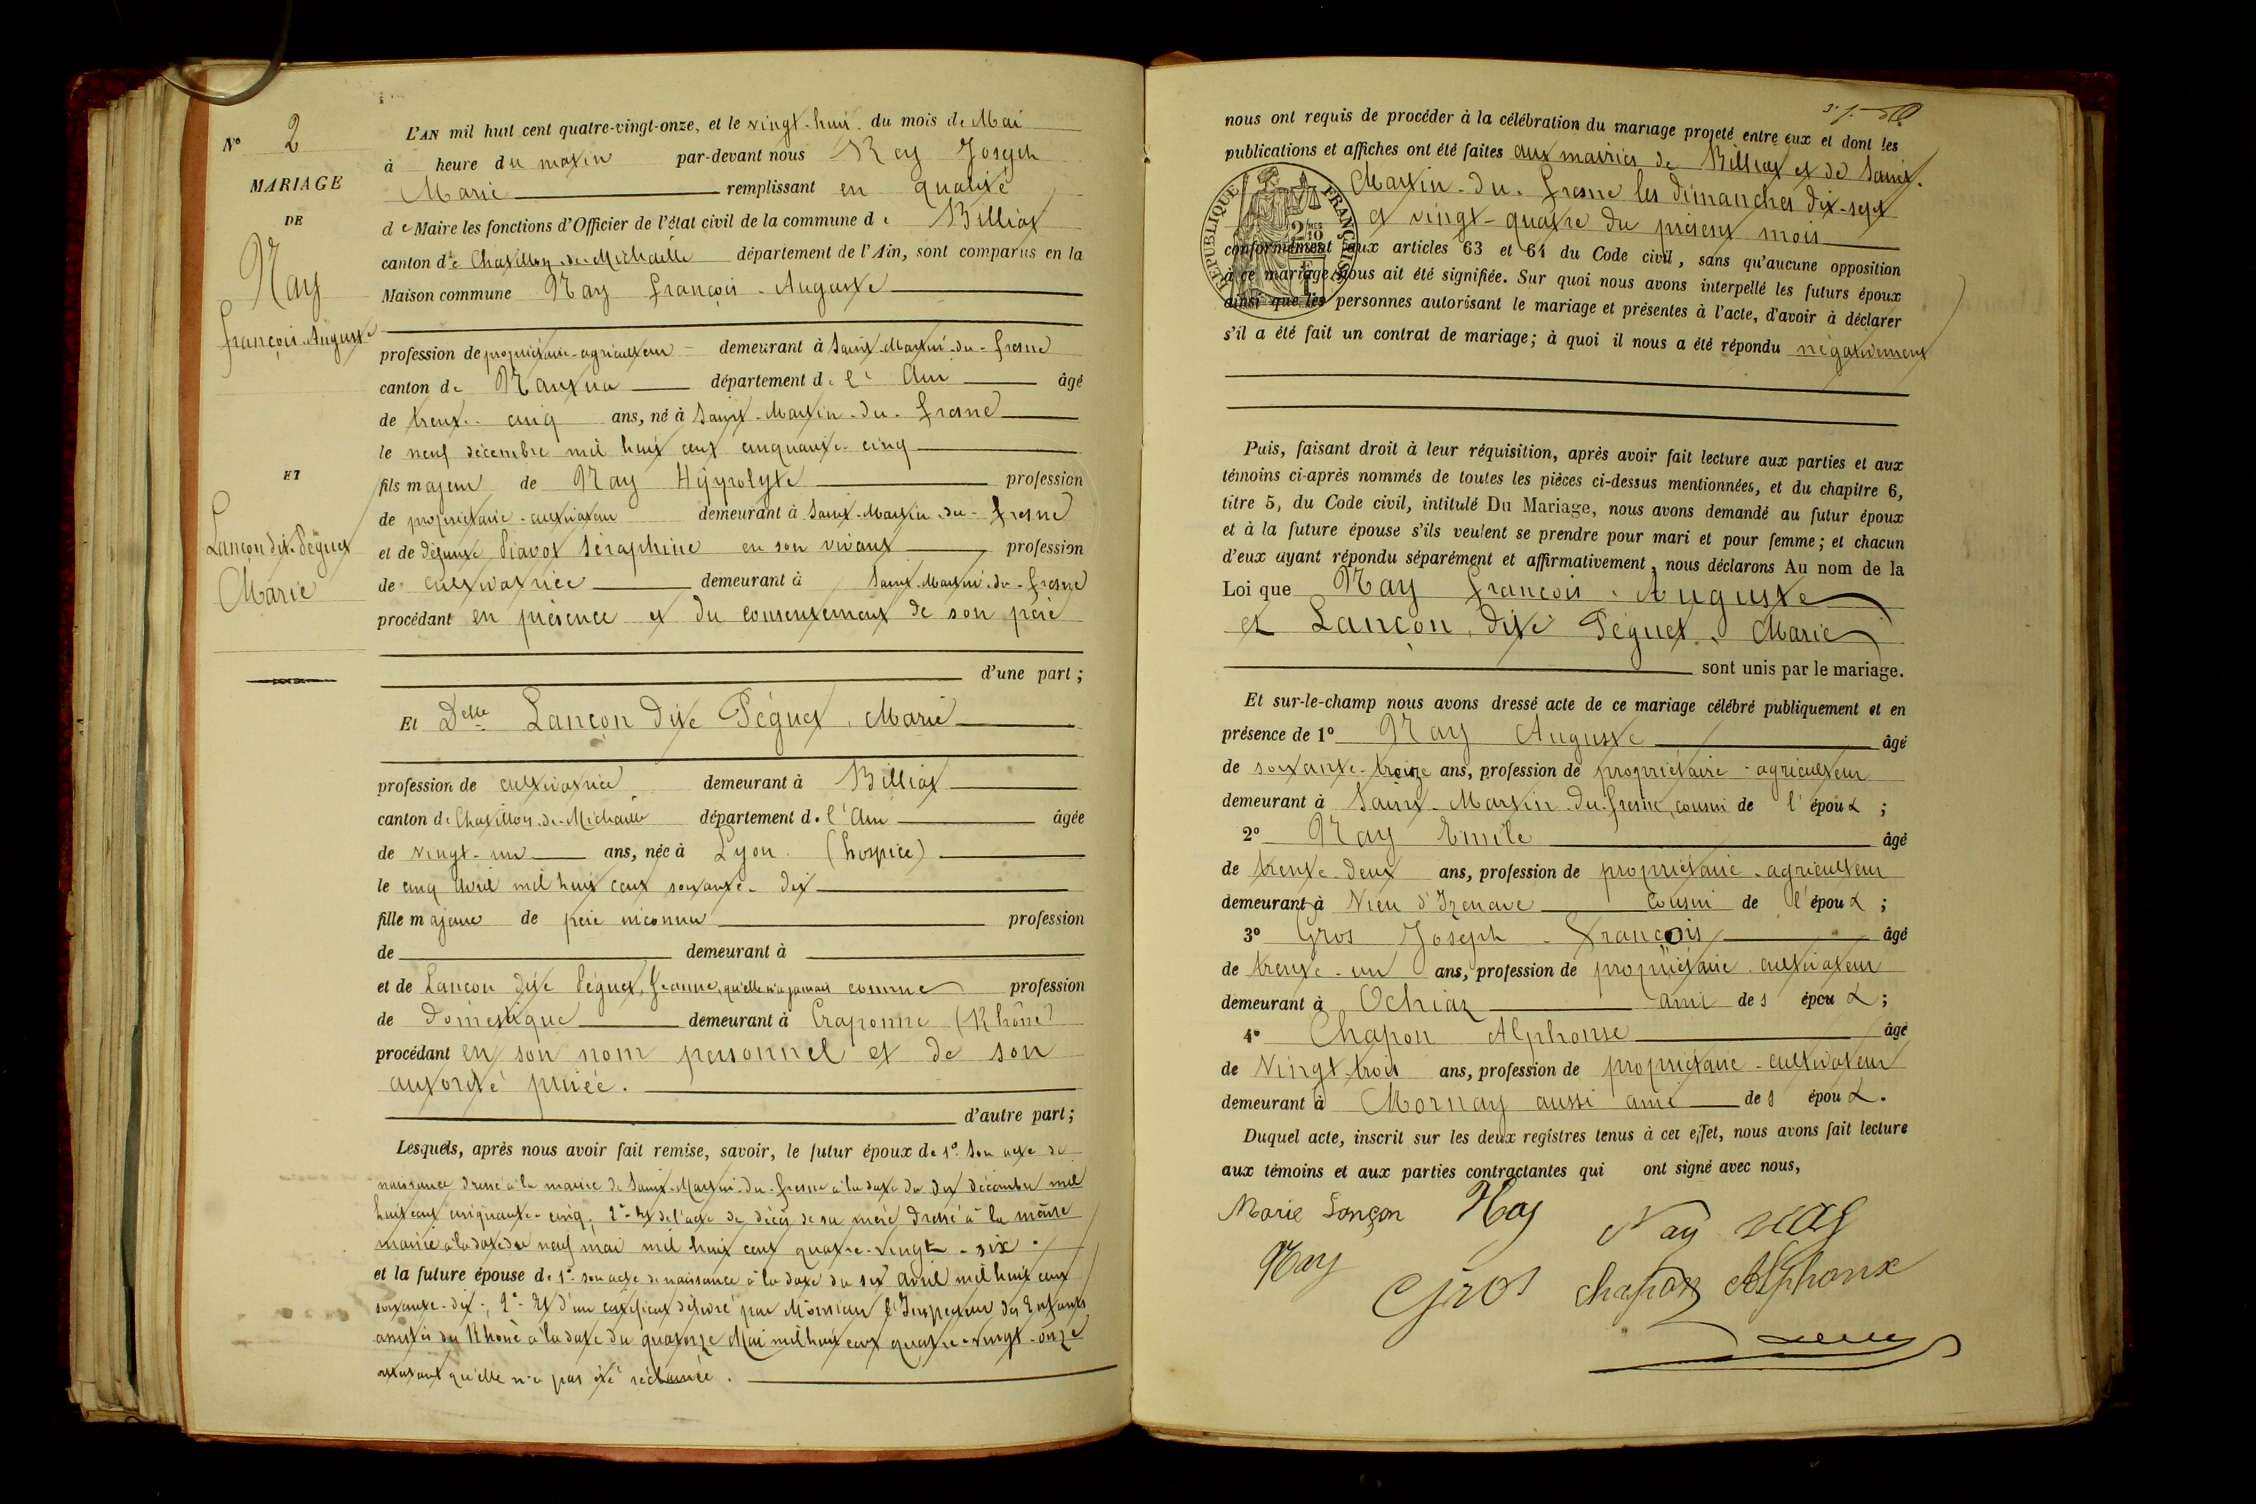 N° 2
MARIAGE
DE
Nay
François-Auguste
ET
Lançon dite Péguet
Marie
L'AN mil huit cent quatre-vingt-onze, et le vingt-huit du mois de Mai
à heure du matin par-devant nous Rey Joseph
Marie remplissant en qualité
de Maire les fonctions d'Officier de l'état civil de la commune de Billiat
canton de Chatillon-de-Michaille département de l'Ain, sont comparus en la
Maison commune Nay François-Auguste
profession de propriétaire-agriculteur demeurant à Saint-Martin-du-Fresne
canton de Nantua département de l'Ain âgé
de trente-cinq ans, né à Saint-Martin-du-Fresne
le neuf décembre mil huit cent cinquante-cinq
fils majeur de Nay Hippolyte profession
de propriétaire-cultivateur demeurant à Saint-Martin-du-Fresne
et de défunte Piavot Séraphine en son vivant profession
de cultivatrice demeurant à Saint-Martin-du-Fresne
procédant en présence et du consentement de son père
d'une part;
Et Delle Lançon dite Péguet, Marie
profession de cultivatrice demeurant à Billiat
canton de Chatillon-de-Michaille département de l'Ain âgée
de vingt-un ans, née à Lyon (hospice)
le cinq avril mil huit cent soixante-dix
fille majeure de père inconnu profession
de demeurant à
et de Lançon dite Péguet, Jeanne, qu'elle n'a jamais connue profession
de domestique demeurant à Craponne (Rhône)
procédant en son nom personnel et de son
autorité privée.
d'autre part;
Lesquels, après nous avoir fait remise, savoir, le futur époux de 1° Son acte de
naissance dressé à la mairie de Saint-Martin-du-Fresne à la date du dix décembre mil
huit cent cinquante-cinq, 2° Et de l'acte de décès de sa mère dressé à la même
mairie à la date du neuf mai mil huit cent quatre-vingt-six.
et la future épouse de 1° son acte de naissance à la date du six avril mil huit cent
soixante-dix; 2° Et d'un certificat délivré par Monsieur l'Inspecteur des Enfants
assistés du Rhône à la date du quatorze Mai mil huit cent quatre-vingt-onze
attestant qu'elle n'a pas été réclamée.
nous ont requis de procéder à la célébration du mariage projeté entre eux et dont les
publications et affiches ont été faites aux mairies de Billiat et de Saint-
Martin-du-Fresne les dimanches dix-sept
et vingt-quatre du présent mois
RÉPUBLIQUE FRANÇAISE
conformément aux articles 63 et 64 du Code civil, sans qu'aucune opposition
à ce mariage nous ait été signifiée. Sur quoi nous avons interpellé les futurs époux
ainsi que les personnes autorisant le mariage et présentes à l'acte, d'avoir à déclarer
s'il a été fait un contrat de mariage; à quoi il nous a été répondu négativement
Puis, faisant droit à leur réquisition, après avoir fait lecture aux parties et aux
témoins ci-après nommés de toutes les pièces ci-dessus mentionnées, et du chapitre 6,
titre 5, du Code civil, intitulé Du Mariage, nous avons demandé au futur époux
et à la future épouse s'ils veulent se prendre pour mari et pour femme; et chacun
d'eux ayant répondu séparément et affirmativement, nous déclarons Au nom de la
Loi que Nay François-Auguste
et Lançon, dite Péguet, Marie
sont unis par le mariage.
Et sur-le-champ nous avons dressé acte de ce mariage célébré publiquement et en
présence de 1° Nay Auguste âgé
de soixante-treize ans, profession de propriétaire-agriculteur
demeurant à Saint-Martin-du-Fresne, cousin de l'époux;
2° Nay Emile âgé
de trente-deux ans, profession de propriétaire-agriculteur
demeurant à Vieu d'Izenave cousin de l'époux;
3° Gros Joseph-François âgé
de trente-un ans, profession de propriétaire-cultivateur
demeurant à Ochiaz ami des époux;
4° Chapon Alphonse âgé
de Vingt-trois ans, profession de propriétaire-cultivateur
demeurant à Mornay aussi ami des époux.
Duquel acte, inscrit sur les deux registres tenus à cet effet, nous avons fait lecture
aux témoins et aux parties contractantes qui ont signé avec nous,
Marie Lançon Nay Nay Nay
Nay Gros Chapon Alphonse